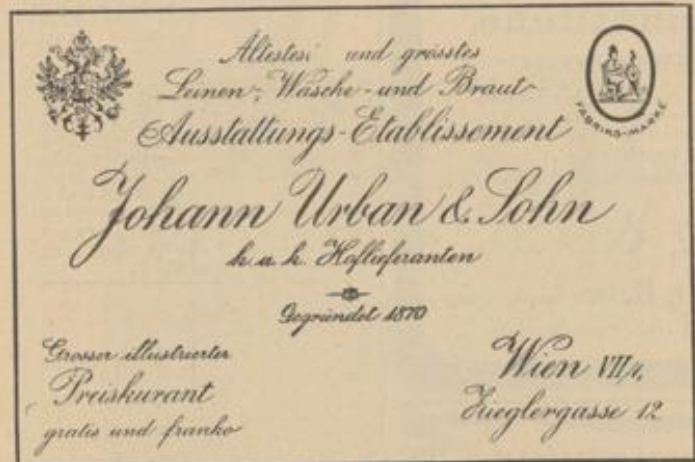 Ältestes und grösstes
Leinen-, Wäsche- und Braut-
Ausstattungs-Etablissement
FABRIKS-MARKE
Johann Urban & Sohn
k. u. k. Hoflieferanten
Gegründet 1870
Grosser illustrierter
Preiskurant
gratis und franko
Wien VII/1,
Zieglergasse 12